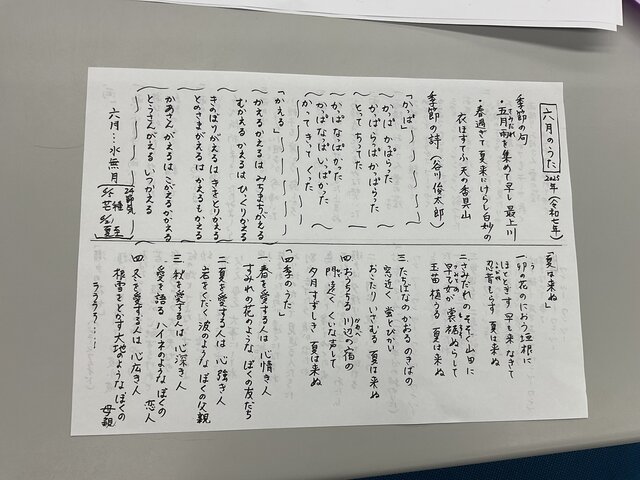 六月のうた 2025年(令和七年)
季節の句
・五月雨を集めて早し 最上川
・春過ぎて 夏来にけらし白妙の
衣ほすてふ 天の香具山
季節の詩 (谷川俊太郎)
「かっぱ」
かっぱ かっぱらった
かっぱ らっぱ かっぱらった
とって ちってた
かっぱ なっぱ かった
かっぱ なっぱ いっぱ かった
かって きって くった
「かえる」
かえる かえるは みちまちがえる
むかえる かえるは ひっくりかえる
きのぼりがえるは きをとりかえる
とのさまがえるは かえるもかえる
かあさんがえるは こがえるかかえる
とうさんがえる いつかえる
六月:水無月
24節気
6/5 芒種
6/21 夏至
「夏は来ぬ」
一.卯の花の におう垣根に
ほととぎす 早も来 なきて
忍音もらす 夏は来ぬ
二.さみだれの そそぐ山田に
早乙女が 裳裾ぬらして
玉苗植うる 夏は来ぬ
三.たちばなの かおる のきばの
窓近く 蛍とびかい
おこたり いさむる 夏は来ぬ
四.おうちちる 川辺の宿の
門遠く くいな声して
夕月すずしき 夏は来ぬ
「四季のうた」
一.春を愛する人は 心清き人
すみれの花のような ぼくの友だち
二.夏を愛する人は 心強き人
岩をくだく波のような ぼくの父親
三.秋を愛する人は 心深き人
愛を語る ハイネのような ぼくの
恋人
四.冬を愛する人は 心広き人
根雪をとかす大地のような ぼくの
母親
ラララララ…